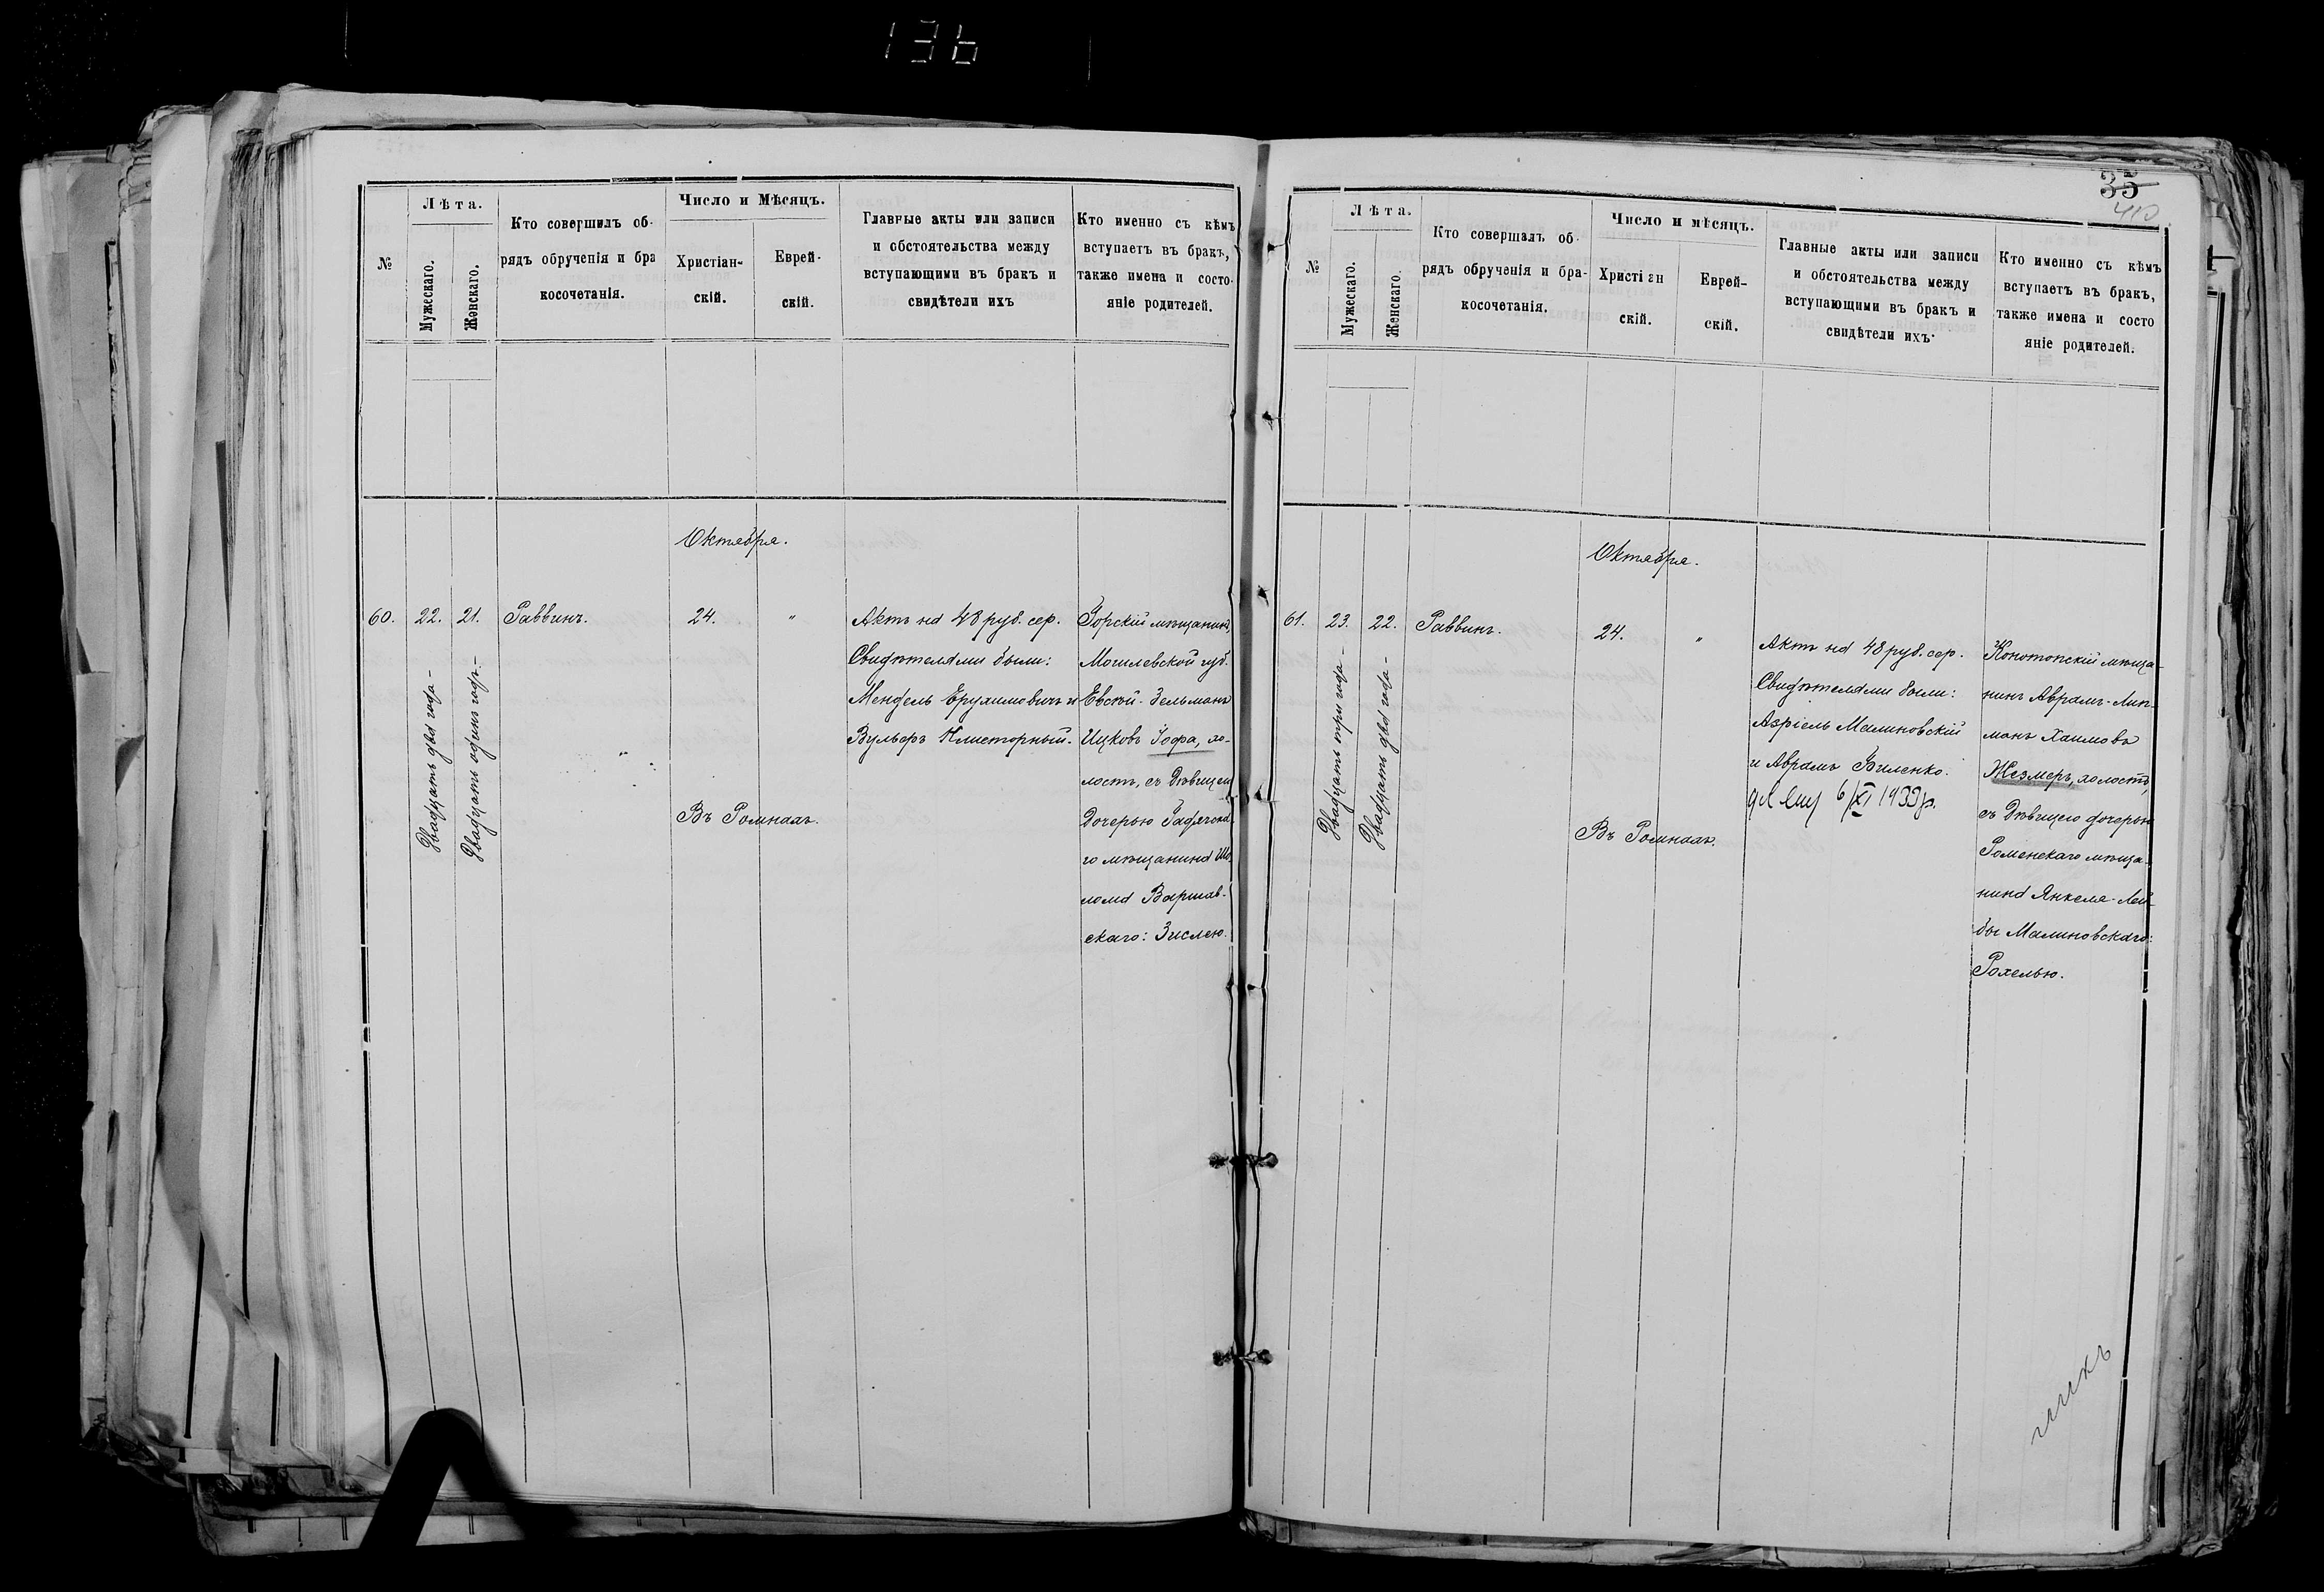 136
Лѣта.
Число и Мѣсяцъ.
№
Мужескаго.
Женскаго.
Кто совершилъ об-
рядъ обрученія и бра
косочетанія.
Христіан-
скій.
Еврей-
скій.
Главные акты или записи
и обстоятельства между
вступающими въ бракъ и
свидѣтели ихъ
Кто именно съ кѣмъ
вступаетъ въ бракъ,
также имена и состо-
яніе родителей.
Октября.
60.
22.
21.
Раввинъ.
24.
"
Двадцать два года -
Двадцать одинъ годъ. -
Въ Ромнахъ.
Актъ на 48 руб. сер.
Свидѣтелями были:
Мендель Ерухимовичъ и
Вульфъ Клисторный.
Горскій мѣщанинъ,
Могилевской губ.
Евсѣй-Зельманъ
Ицковъ Іофа, хо-
лостъ, съ Дѣвицею
Дочерью Гадячска-
го мѣщанина Шо-
лома Варшав-
скаго: Зислею.
35
410
Лѣта.
Число и мѣсяцъ.
№
Мужескаго.
Женскаго.
Кто совершалъ об-
рядъ обрученія и бра-
косочетанія.
Христіан
скій.
Еврей-
скій.
Главные акты или записи
и обстоятельства между
вступающими въ бракъ и
свидѣтели ихъ.
Кто именно съ кѣмъ
вступаетъ въ бракъ,
также имена и состо
яніе родителей.
Октября.
61.
23.
22.
Раввинъ.
24.
"
Двадцать три года -
Двадцать два года -
Въ Ромнахъ.
Актъ на 48 руб. сер.
Свидѣтелями были:
Азріель Малиновскій
и Аврамъ Биленко.
6/XI 1933 р.
Конотопскій мѣща-
нинъ Аврамъ-Лип-
манъ Хаимовъ
Жезмеръ, холостъ,
съ Дѣвицею дочерью
Роменскаго мѣща-
нина Янкеля-Лей-
бы Малиновскаго:
Рохелью.